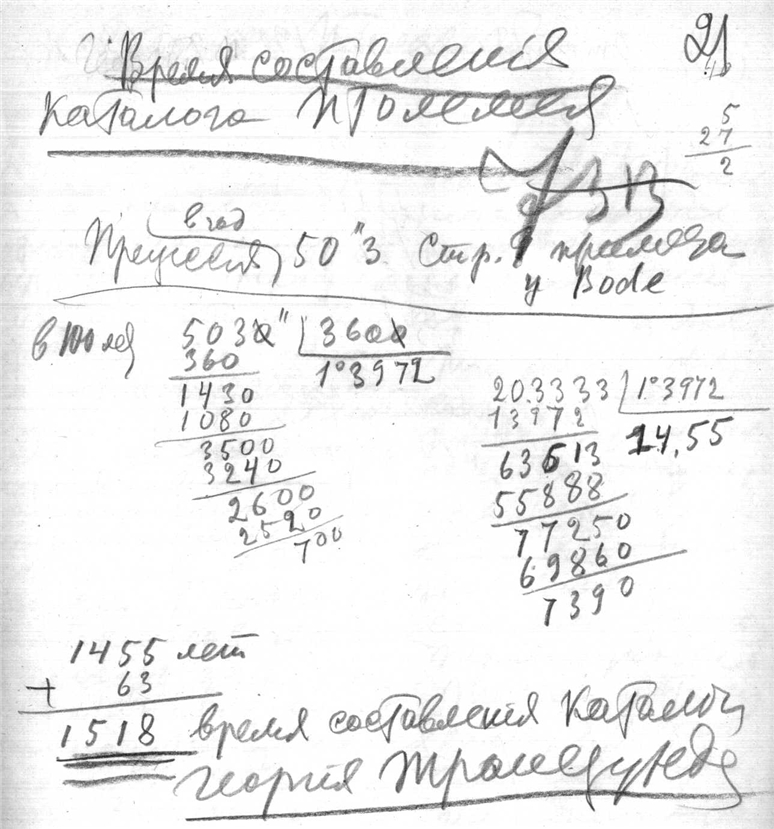 Время составления
каталога Птолемея
21
5
27
2
в год
Прецессия 50"3. Стр. 9
у Bode
в 100 лет 5030" | 3600
360 1°3972
1430
1080
3500
3240
2600
2520
700
20.3333 | 1°3972
13972 14,55
63613
55888
77250
69860
7390
1455 лет
+ 63
1518 время составления каталога
Георгия Трапезунда